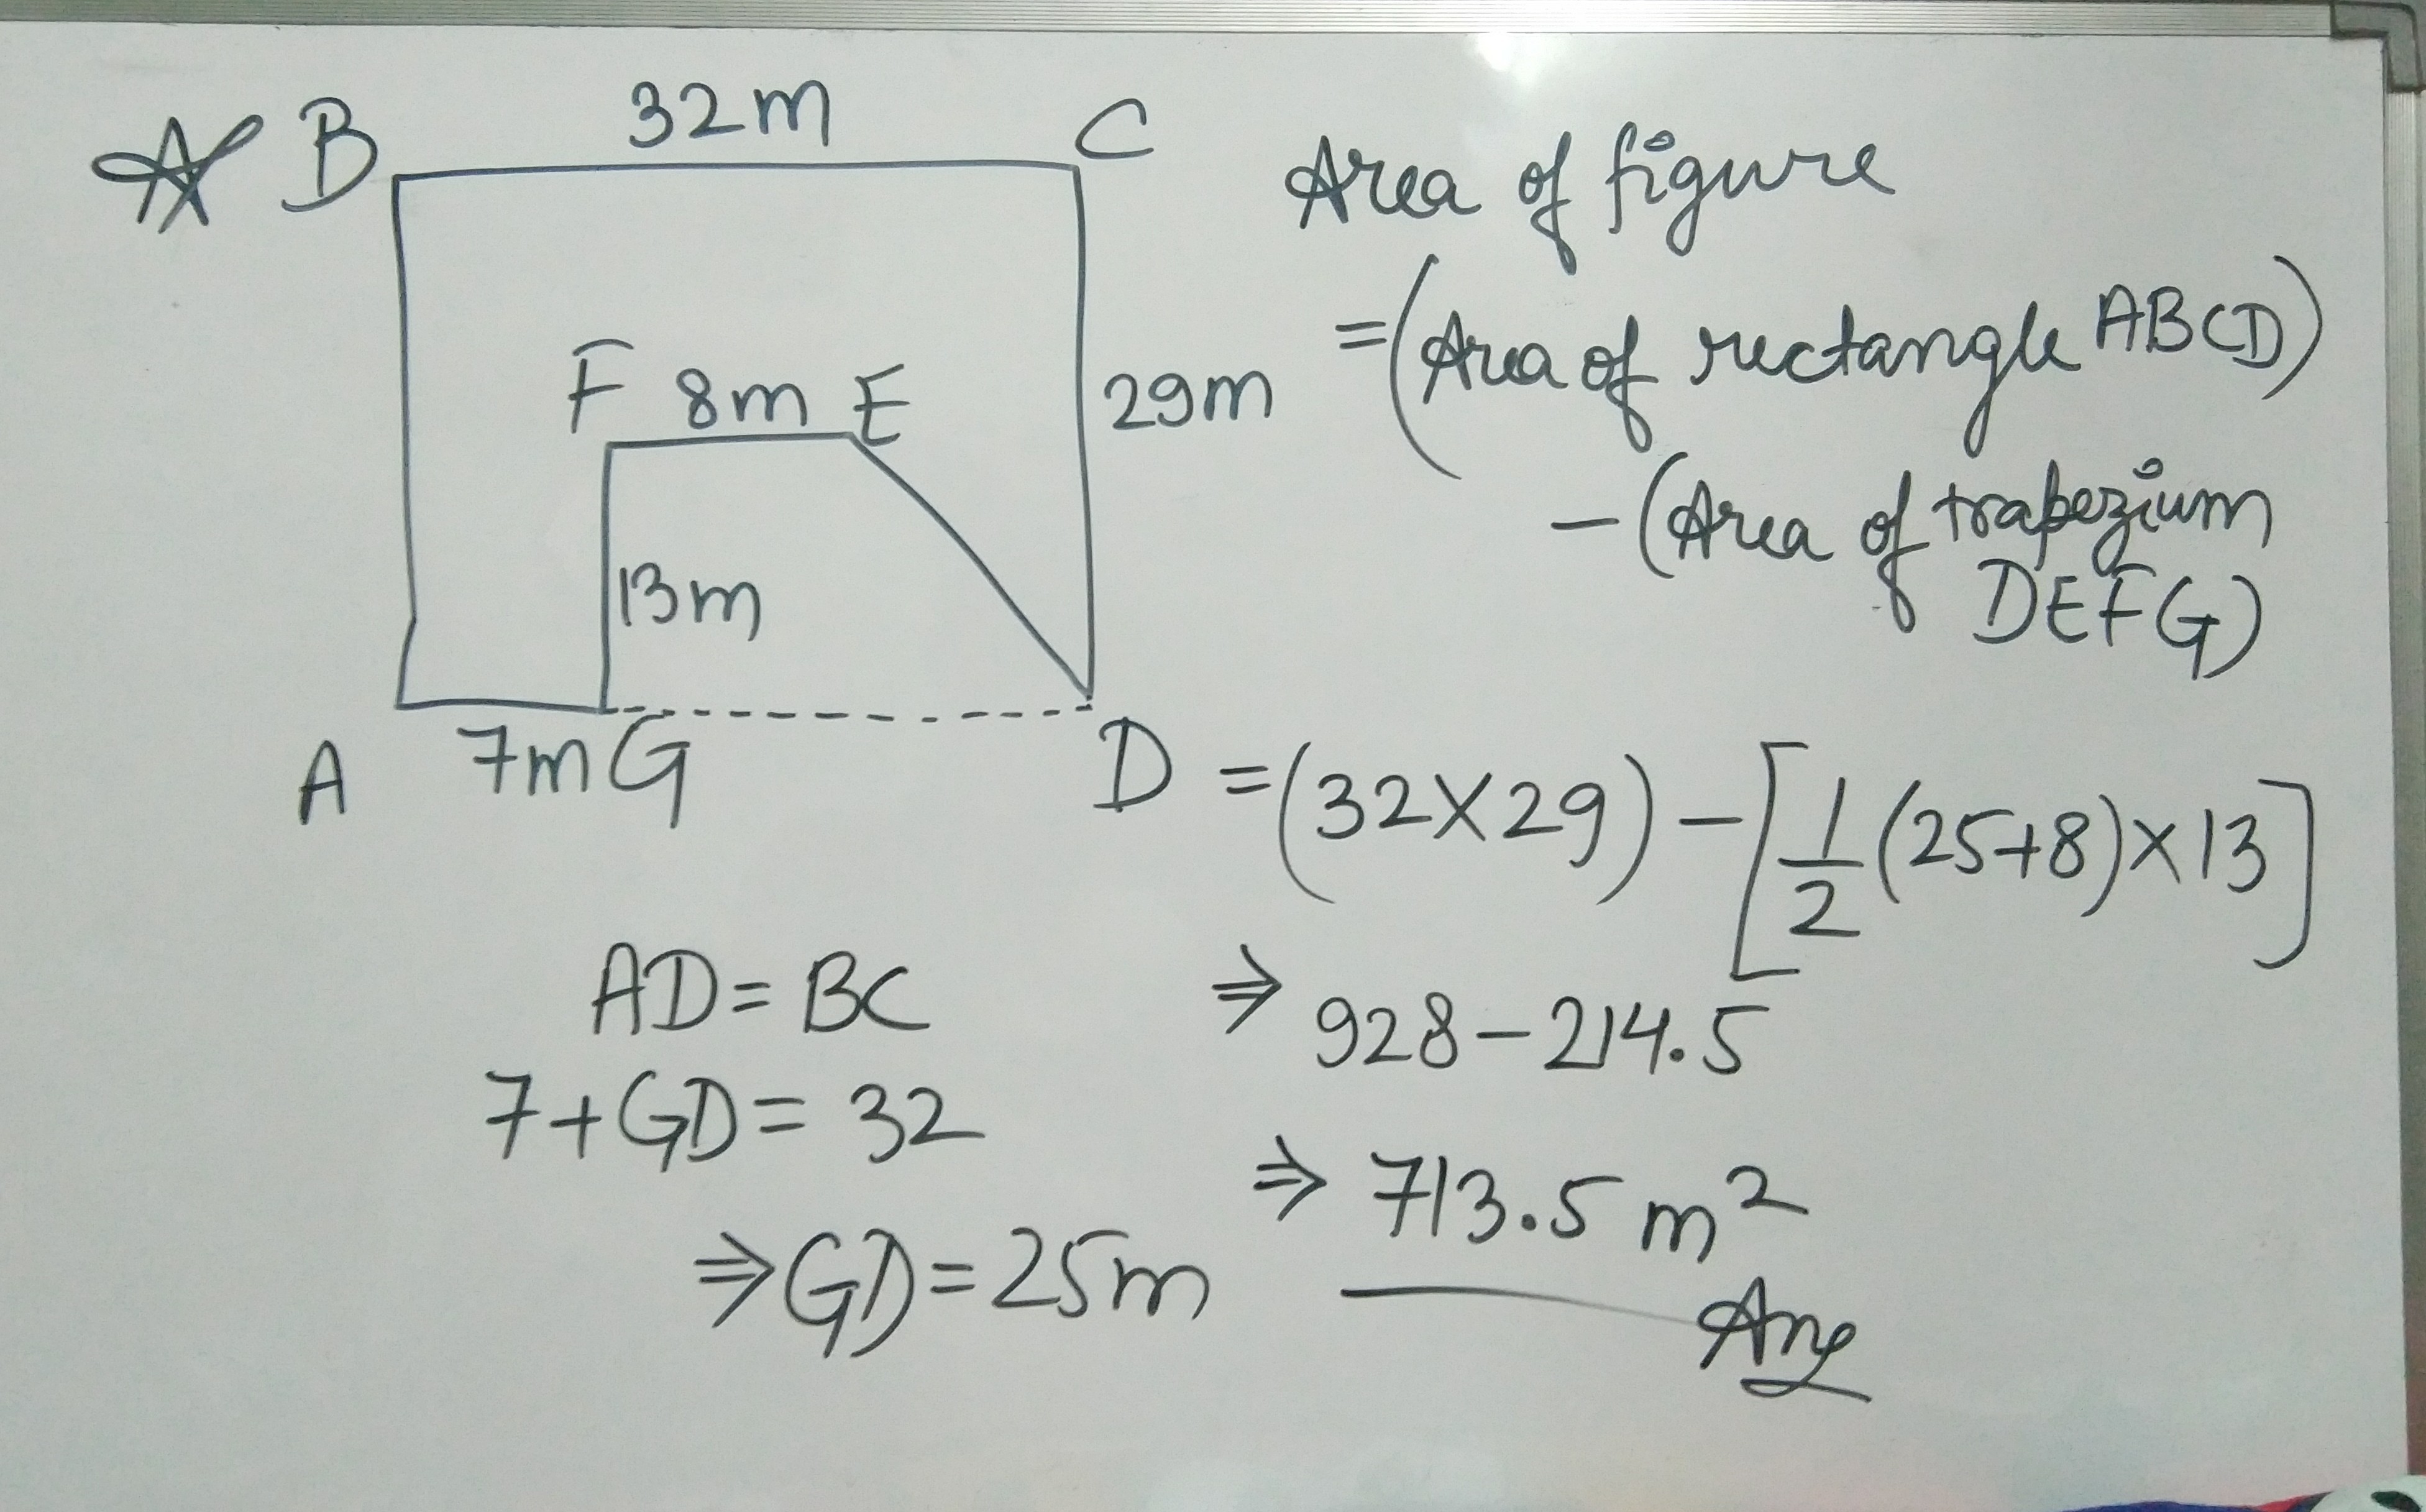 B 32m C
F 8m E
29m
13m
A 7m G D
Area of figure
=(Area of rectangle ABCD)
-(Area of trapezium
DEFG)
=(32×29)-[1/2(25+8)×13]
⇒ 928-214.5
⇒ 713.5 m²
Ans
AD=BC
7+GD=32
⇒GD=25m